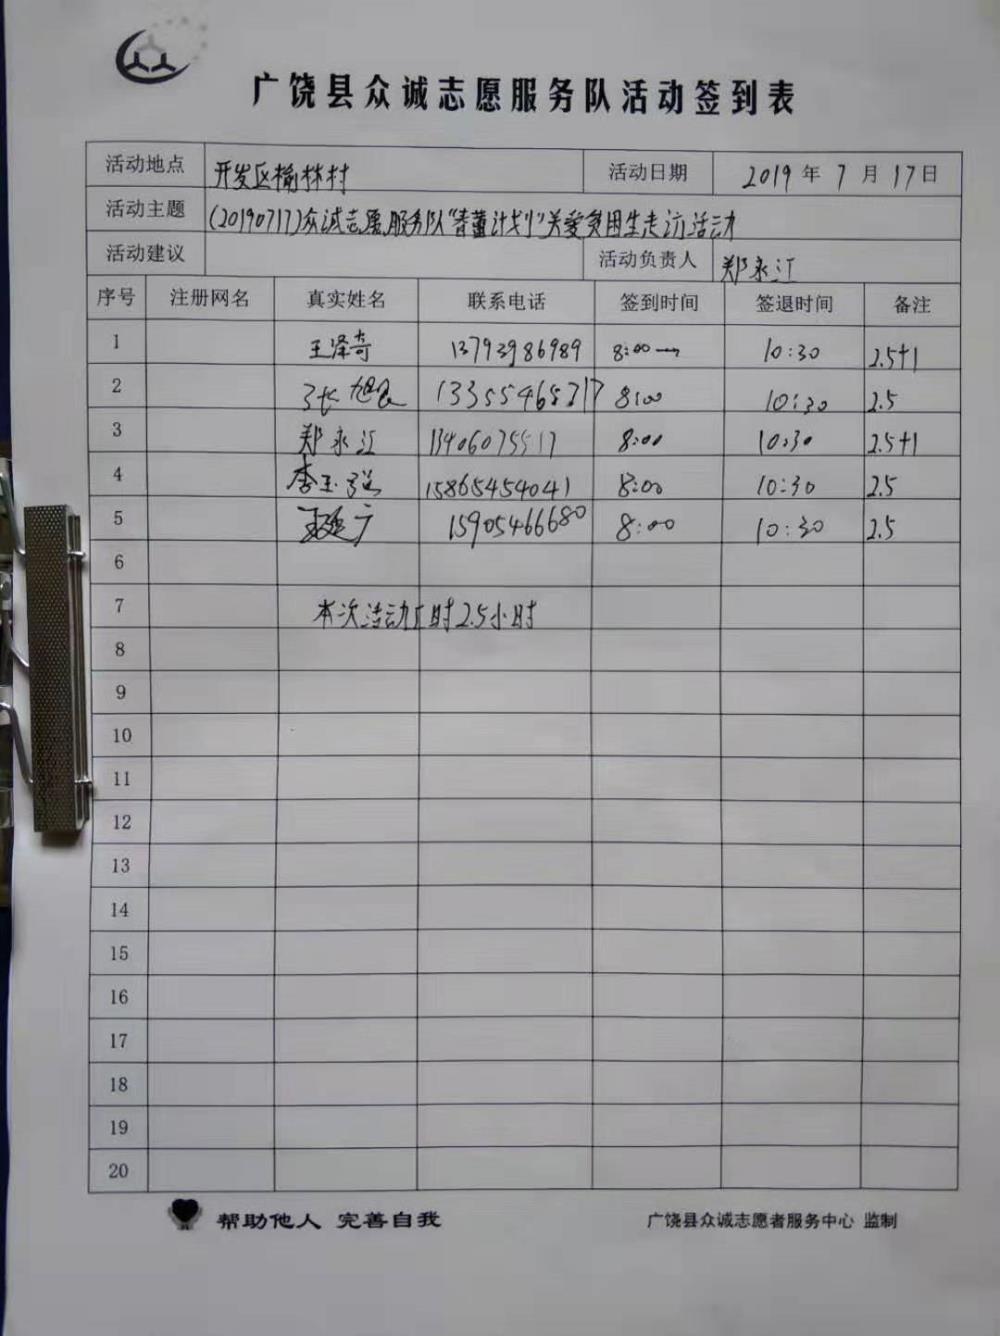 广饶县众诚志愿服务队活动签到表
活动地点 开发区榆林村 活动日期 2019年7月17日
活动主题 (20190717)众诚志愿服务队"春蕾计划"关爱贫困生走访活动
活动建议 活动负责人 郑永江
序号 注册网名 真实姓名 联系电话 签到时间 签退时间 备注
1 王泽奇 13793986989 8:00 10:30 2.5+1
2 张旭良 13355465217 8:00 10:30 2.5
3 郑永江 13406075517 8:00 10:30 2.5+1
4 李玉强 15865454041 8:00 10:30 2.5
5 广 15905466680 8:00 10:30 2.5
6
7 本次活动工时2.5小时
8
9
10
11
12
13
14
15
16
17
18
19
20
帮助他人 完善自我 广饶县众诚志愿者服务中心 监制